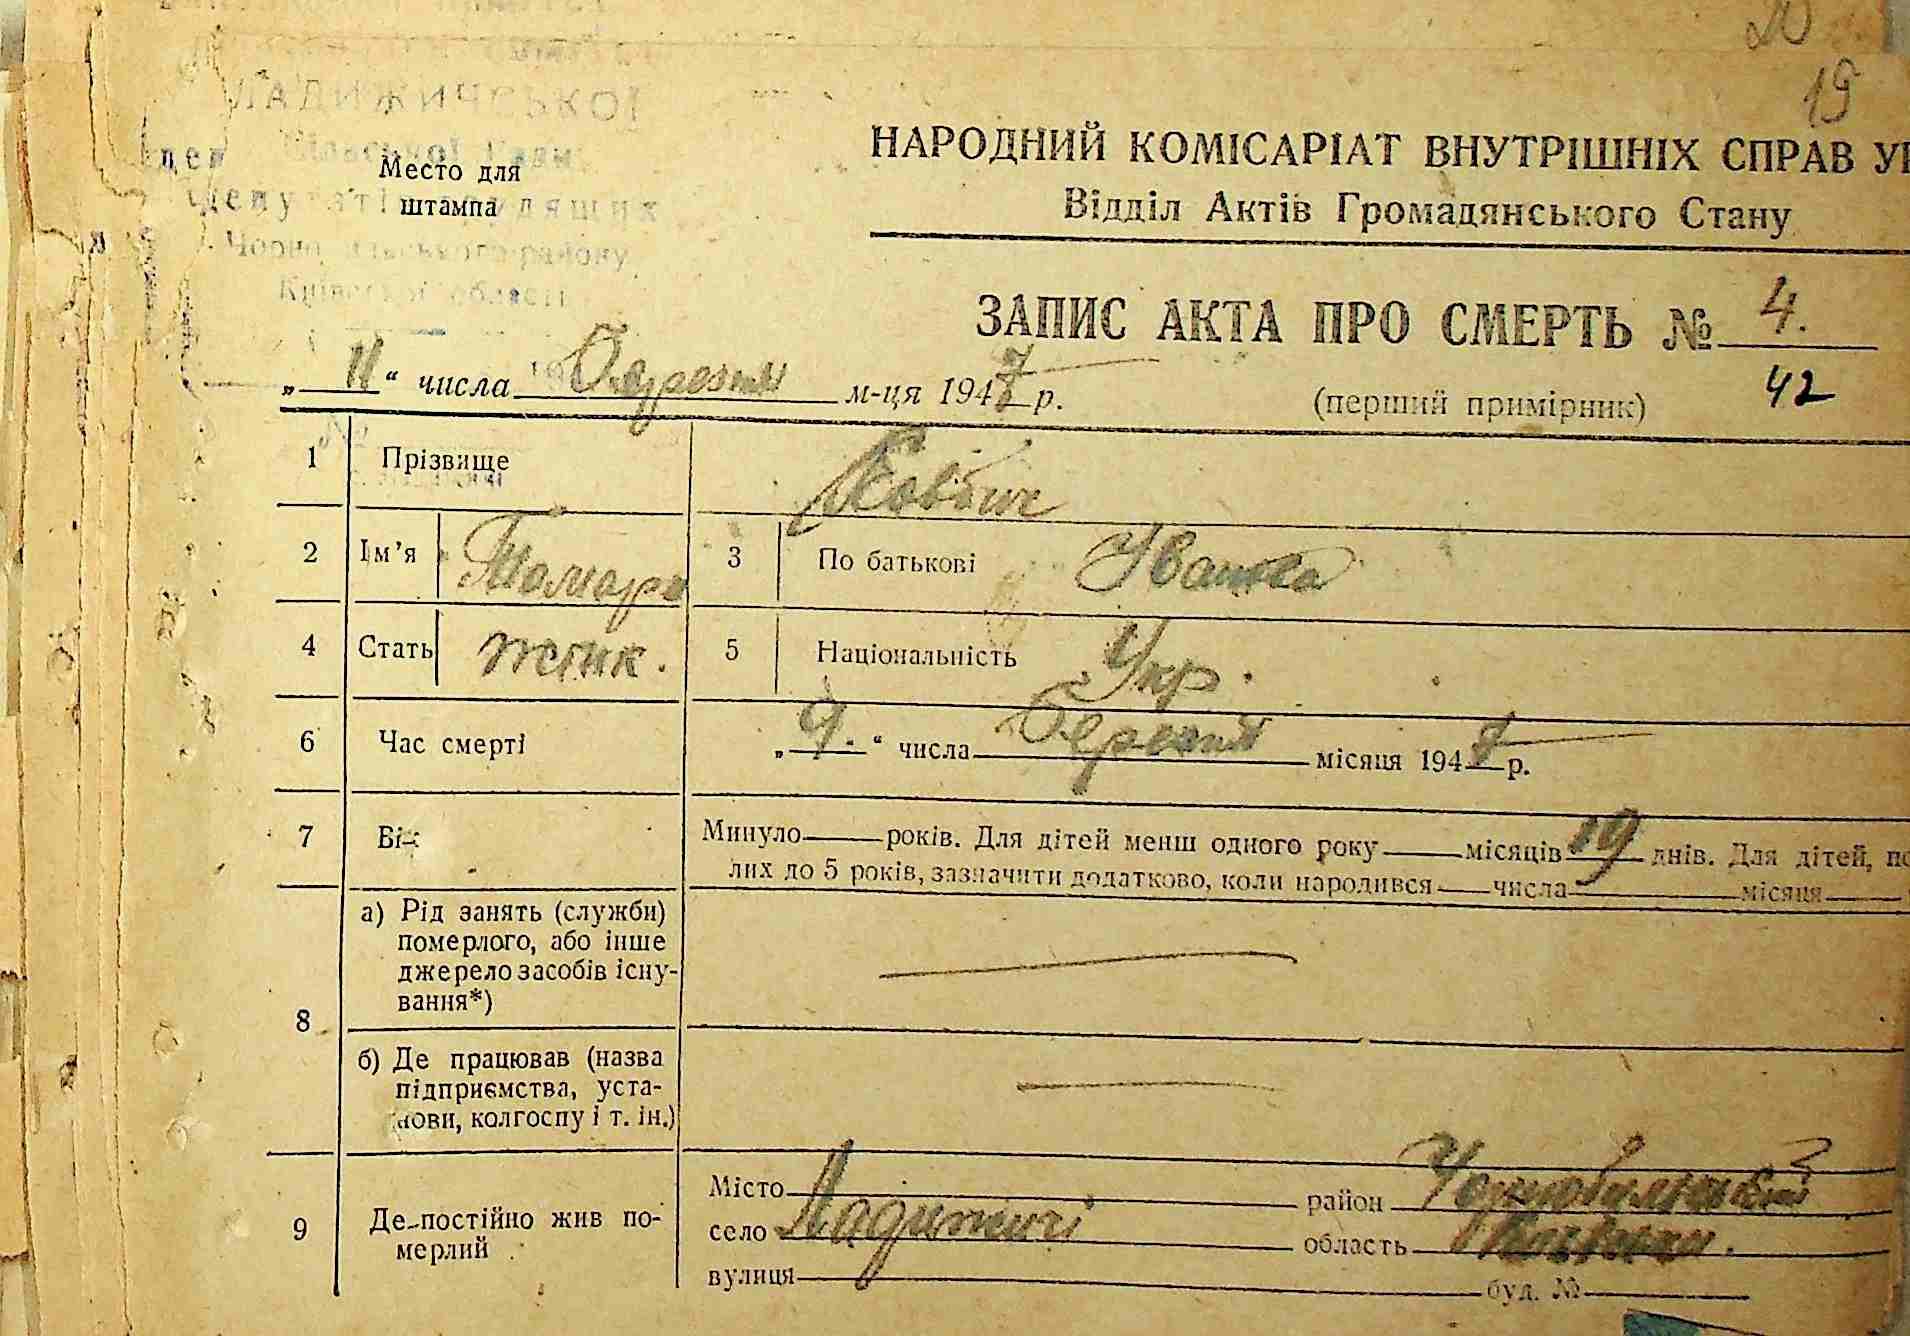 20
19
ЛАДИЖИЧСЬКОЇ
Сільської Ради
Депутатів Трудящих
Чорнобильського району
Київської області
Место для
штампа
НАРОДНИЙ КОМІСАРІАТ ВНУТРІШНІХ СПРАВ
Відділ Актів Громадянського Стану
ЗАПИС АКТА ПРО СМЕРТЬ № 4.
„ 11 “ числа Березня м-ця 1947 р.
(перший примірник) 42
1 Прізвище Ковбич
2 Ім’я Тамара 3 По батькові Іванова
4 Стать жінк. 5 Національність Укр.
6 Час смерті „ 9. “ числа Березня місяця 1947 р.
7 Вік Минуло років. Для дітей менш одного року місяців 19 днів. Для дітей,
лих до 5 років, зазначити додатково, коли народився числа місяця
8 а) Рід занять (служби)
померлого, або інше
джерело засобів існу-
вання*)
б) Де працював (назва
підприємства, уста-
нови, колгоспу і т. ін.)
9 Де постійно жив по-
мерлий
Місто район Чорнобильський
село Ладижичі область Київськи.
вулиця буд. №